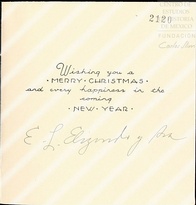 2120
FUNDACIÓN
Wishing you a
· MERRY · CHRISTMAS ·
and every happiness in the
coming
· NEW · YEAR ·
E. L. y